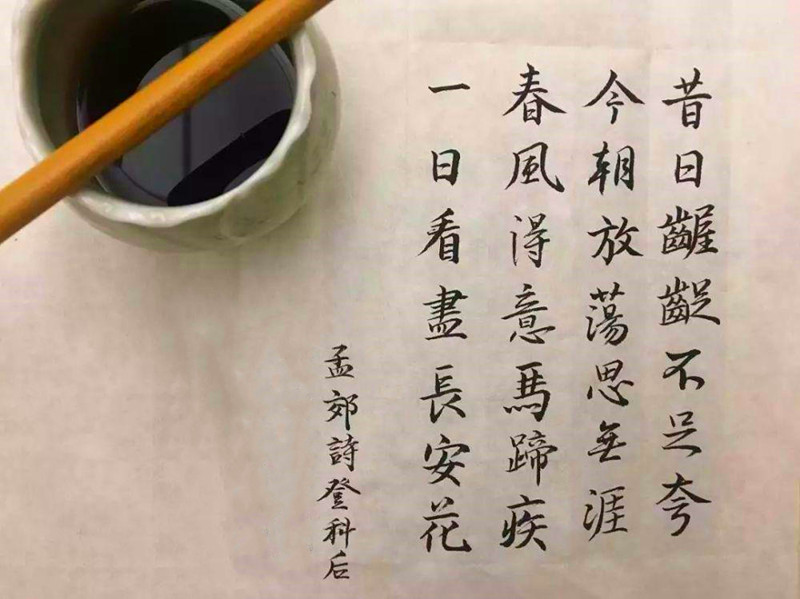 昔日齷齪不足夸
今朝放蕩思無涯
春風得意馬蹄疾
一日看盡長安花
孟郊詩登科后